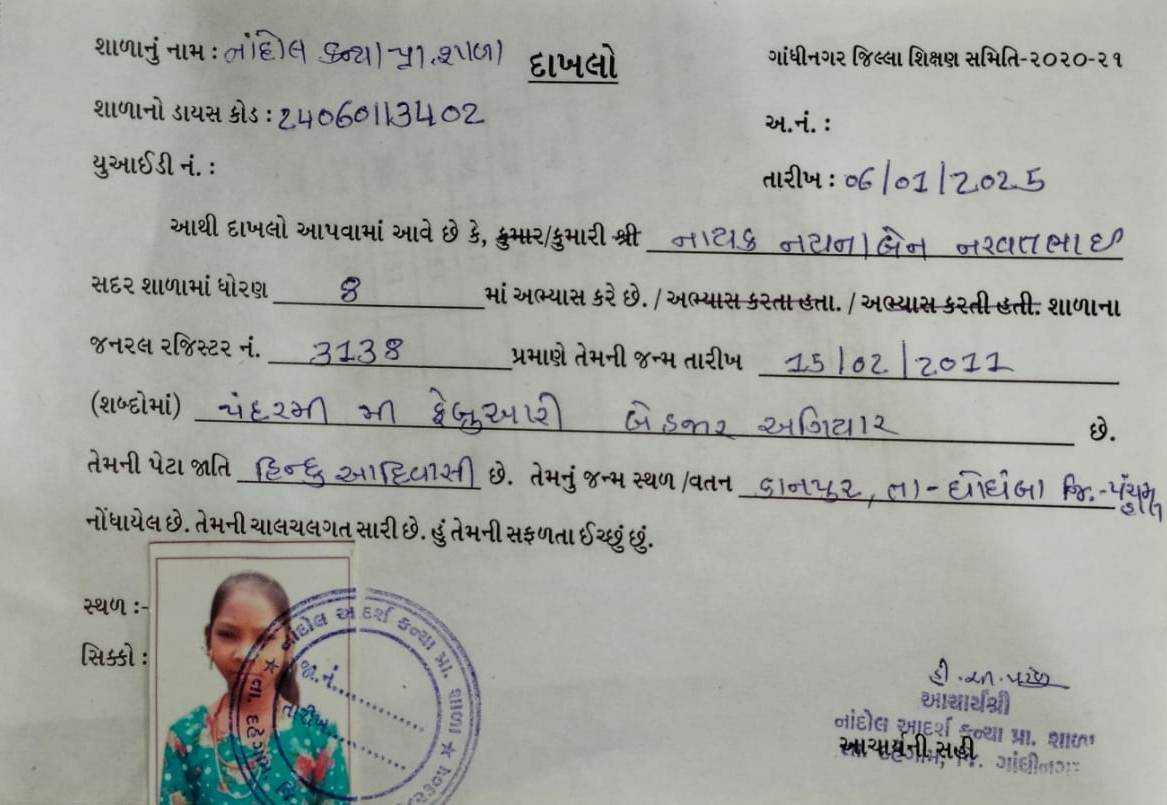 શાળાનું નામ : નાંદોલ કન્યા પ્રા. શાળા
દાખલો
ગાંધીનગર જિલ્લા શિક્ષણ સમિતિ-૨૦૨૦-૨૧
શાળાનો ડાયસ કોડ : 24060113402
અ.નં. :
યુઆઈડી નં. :
તારીખ : 06/01/2025
આથી દાખલો આપવામાં આવે છે કે, કુમાર/કુમારી શ્રી નાયક નયનાબેન નરવતભાઈ
સદર શાળામાં ધોરણ 8 માં અભ્યાસ કરે છે. / અભ્યાસ કરતા હતા. / અભ્યાસ કરતી હતી. શાળાના
જનરલ રજિસ્ટર નં. 3138 પ્રમાણે તેમની જન્મ તારીખ 15/02/2011
(શબ્દોમાં) પંદરમી મી ફેબ્રુઆરી બે હજાર અગિયાર છે.
તેમની પેટા જાતિ હિન્દુ આદિવાસી છે. તેમનું જન્મ સ્થળ /વતન કાનપુર, તા-ઘોઘંબા જિ.-પંચમહાલ
નોંધાયેલ છે. તેમની ચાલચલગત સારી છે. હું તેમની સફળતા ઈચ્છું છું.
સ્થળ :-
સિક્કો :
નાંદોલ આદર્શ કન્યા પ્રા. શાળા ★ તા. દહેગામ
જા.નં.
તારીખ
આચાર્યશ્રી
નાંદોલ આદર્શ કન્યા પ્રા. શાળા
આચાર્યની સહી
તા. દહેગામ, જિ. ગાંધીનગર